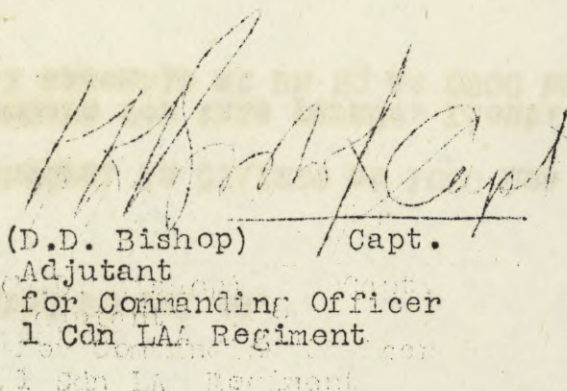 Capt
(D.D. Bishop) Capt.
Adjutant
for Commanding Officer
1 Cdn LAA Regiment